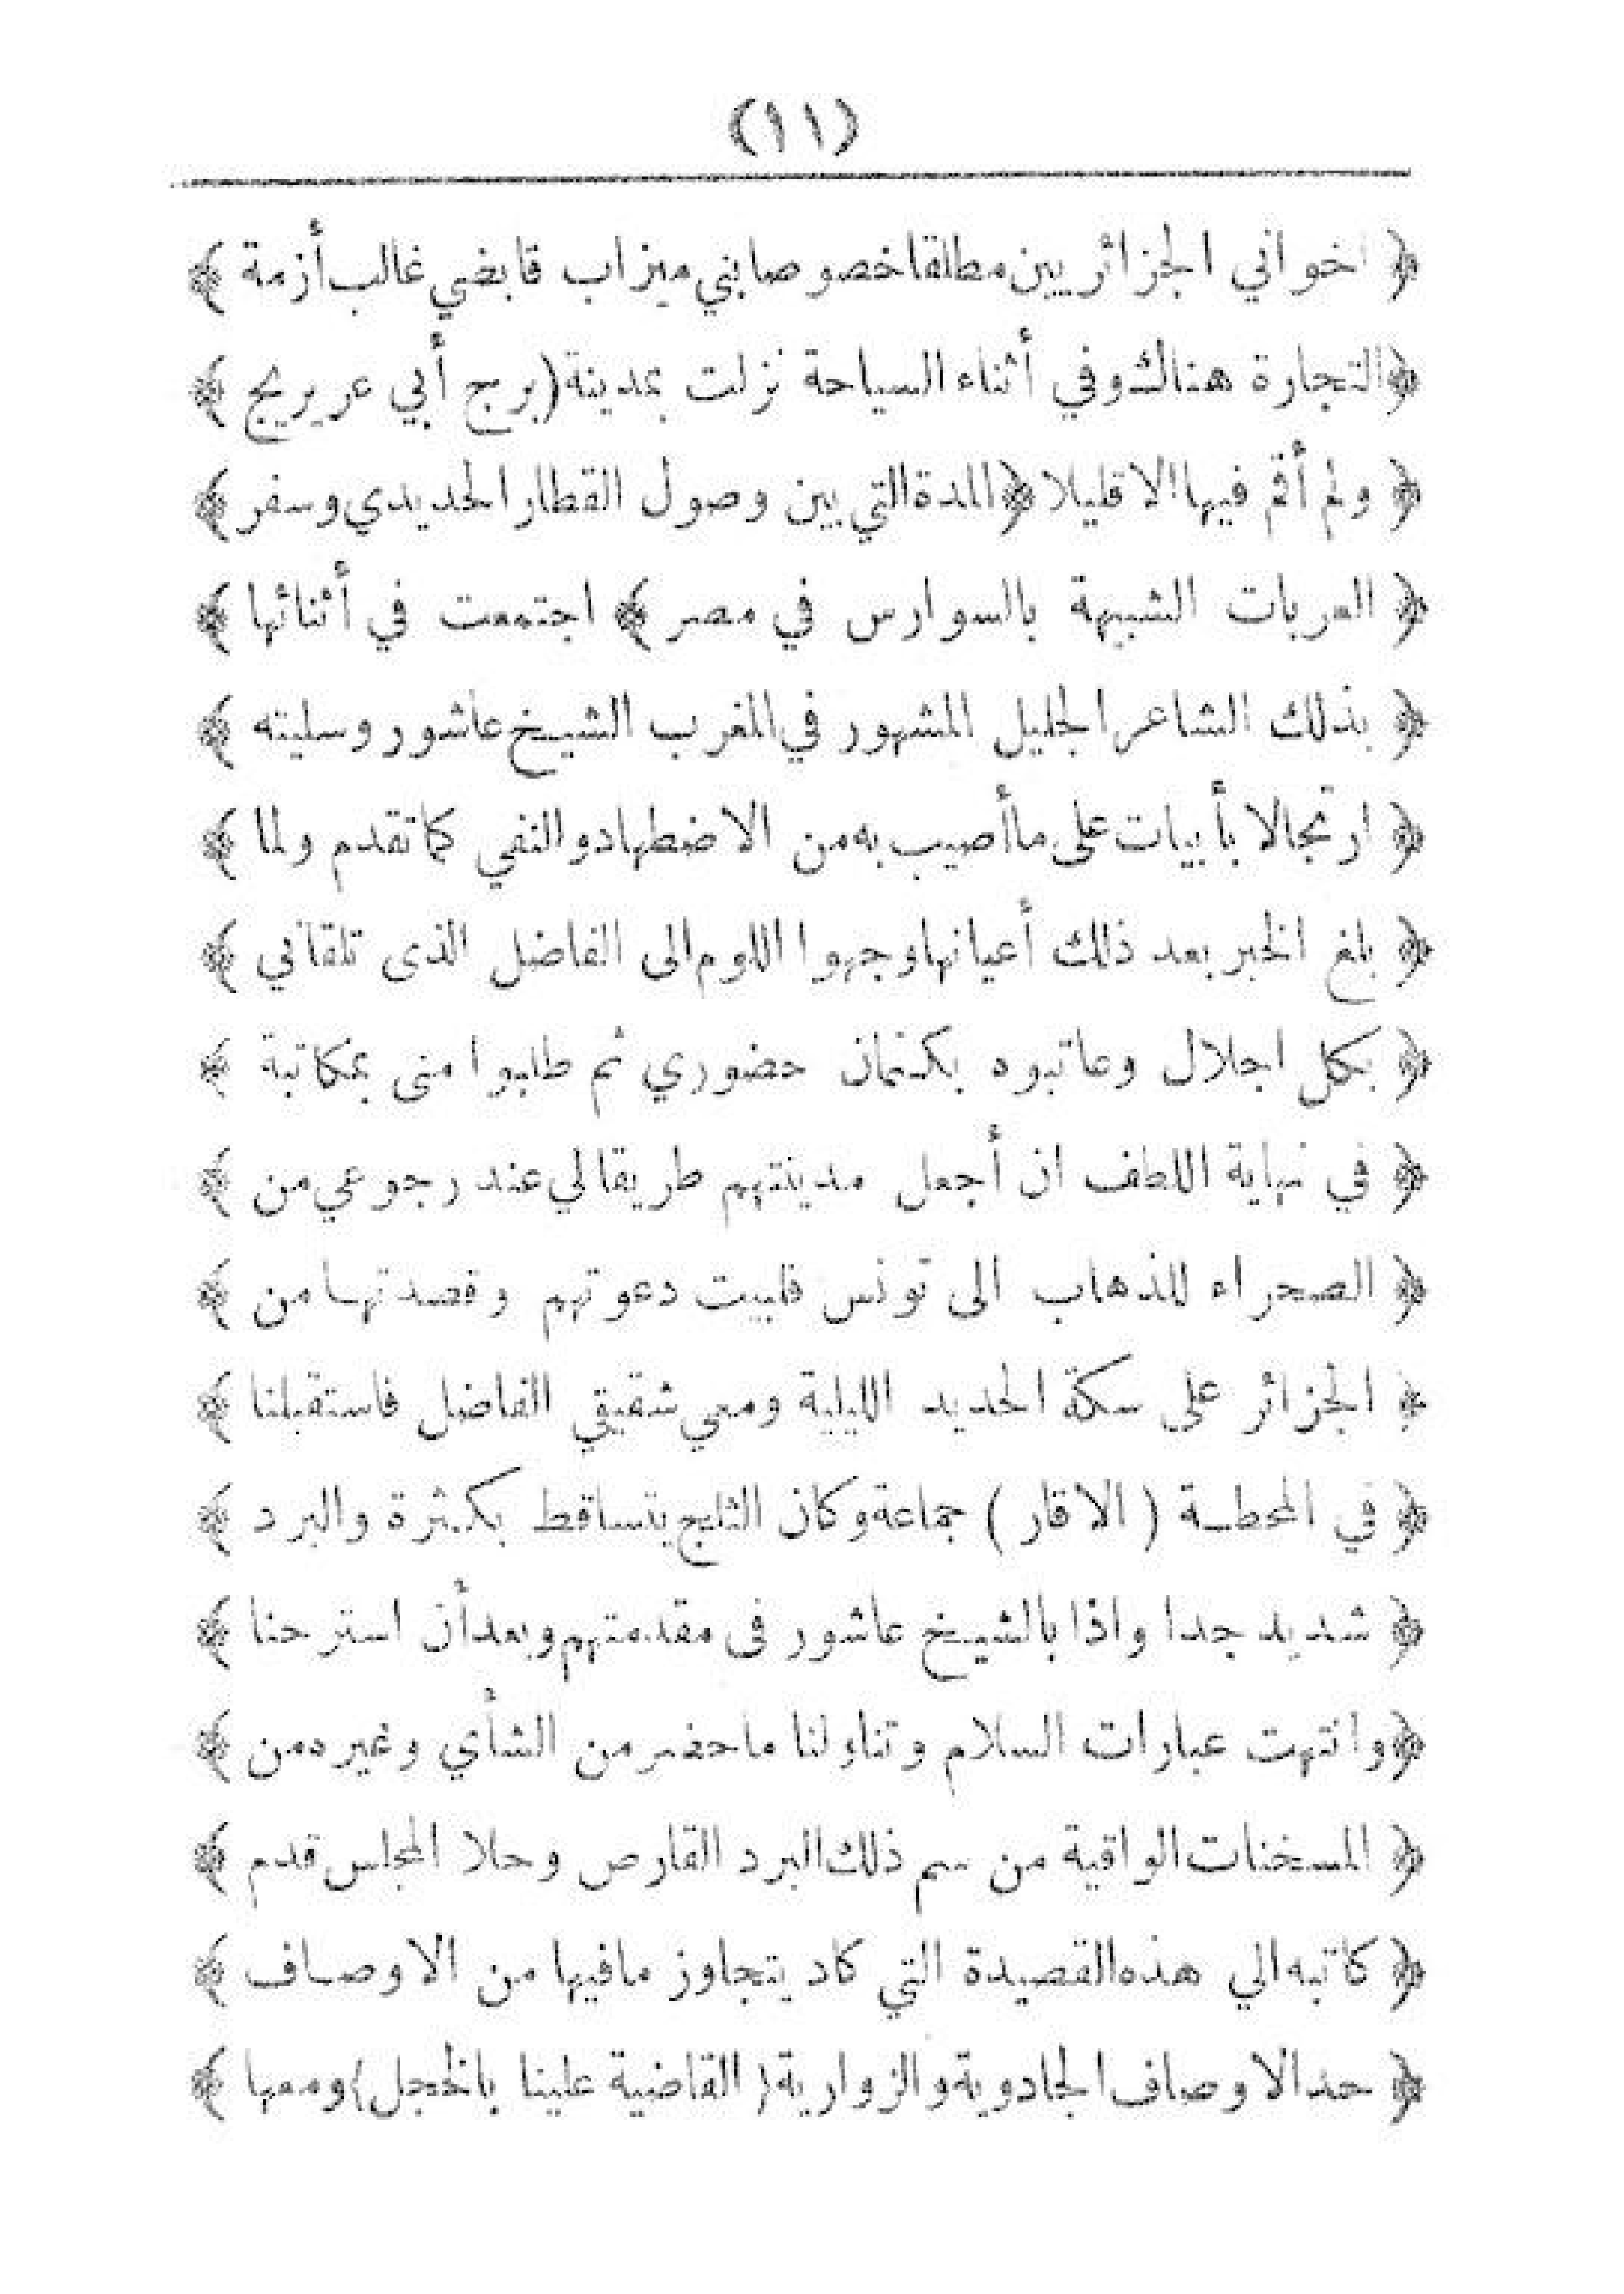 (١١)
﴿ اخواني الجزائريين مطلقا خصوصا بني ميزاب قابضي غالب أزمة ﴾
﴿ التجارة هناك وفي أثناء السياحة نزلت بمدينة (برج أبي عريريج ﴾
﴿ ولم أقم فيها الا قليلا ﴿ المدة التي بين وصول القطار الحديدي وسفر ﴾
﴿ العربات الشبيهة بالسوارس في مصر ﴾ اجتمعت في أثنائها ﴾
﴿ بذلك الشاعر الجليل المشهور في المغرب الشيخ عاشور وسليته ﴾
﴿ ارتجالا بأبيات على ما أصيب به من الاضطهاد والنفي كما تقدم ولما ﴾
﴿ بلغ الخبر بعد ذلك أعيانها وجهوا اللوم الى الفاضل الذى تلقاني ﴾
﴿ بكل اجلال وعاتبوه بكتمان حضوري ثم طلبوا منى بمكاتبة ﴾
﴿ في نهاية اللطف ان أجعل مدينتهم طريقا لي عند رجوعي من ﴾
﴿ الصحراء للذهاب الى تونس فلبيت دعوتهم وقصدتها من ﴾
﴿ الجزائر على سكة الحديد الليلية ومعي شقيقي الفاضل فاستقبلنا ﴾
﴿ في المحطة ( الاقار ) جماعة وكان الثلج يتساقط بكثرة والبرد ﴾
﴿ شديد جدا واذا بالشيخ عاشور فى مقدمتهم وبعد أن استرحنا ﴾
﴿ وانتهت عبارات السلام وتناولنا ما حضر من الشأي وغيره من ﴾
﴿ المسخنات الواقية من سم ذلك البرد القارص وحلا المجلس قدم ﴾
﴿ كاتبه الي هذه القصيدة التي كاد يتجاوز ما فيها من الاوصاف ﴾
﴿ حد الاوصاف الجادوية والزوارية ( القاضية علينا بالخجل ) ومعها ﴾